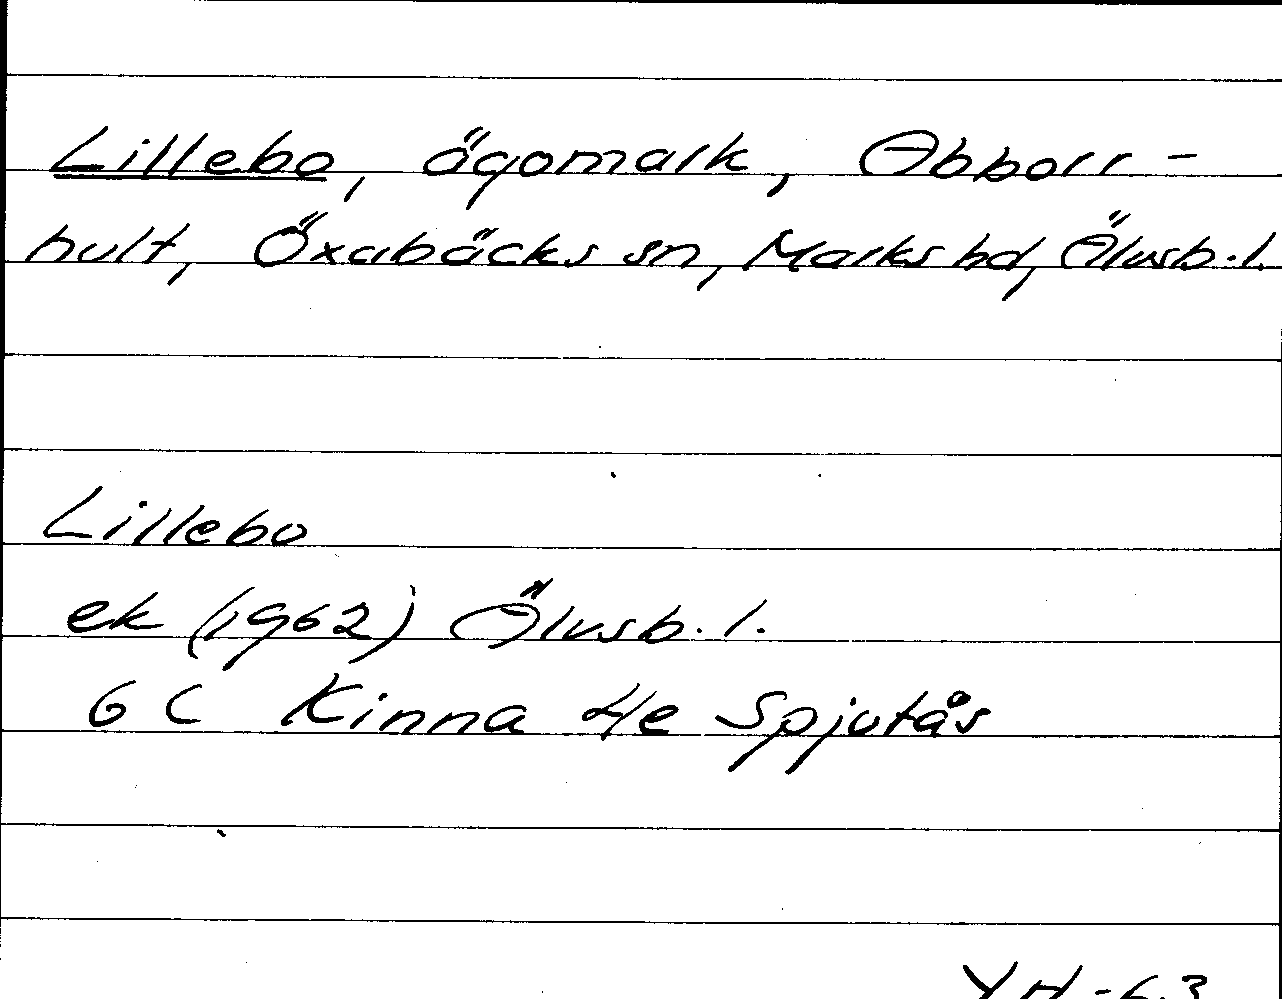 Lillebo, ägomark, Abborr-
hult, Öxabäcks sn, Marks hd, Älvsb.l.
Lillebo
ek (1962) Älvsb.l.
6 C Kinna 4e Spjutås
YH-63